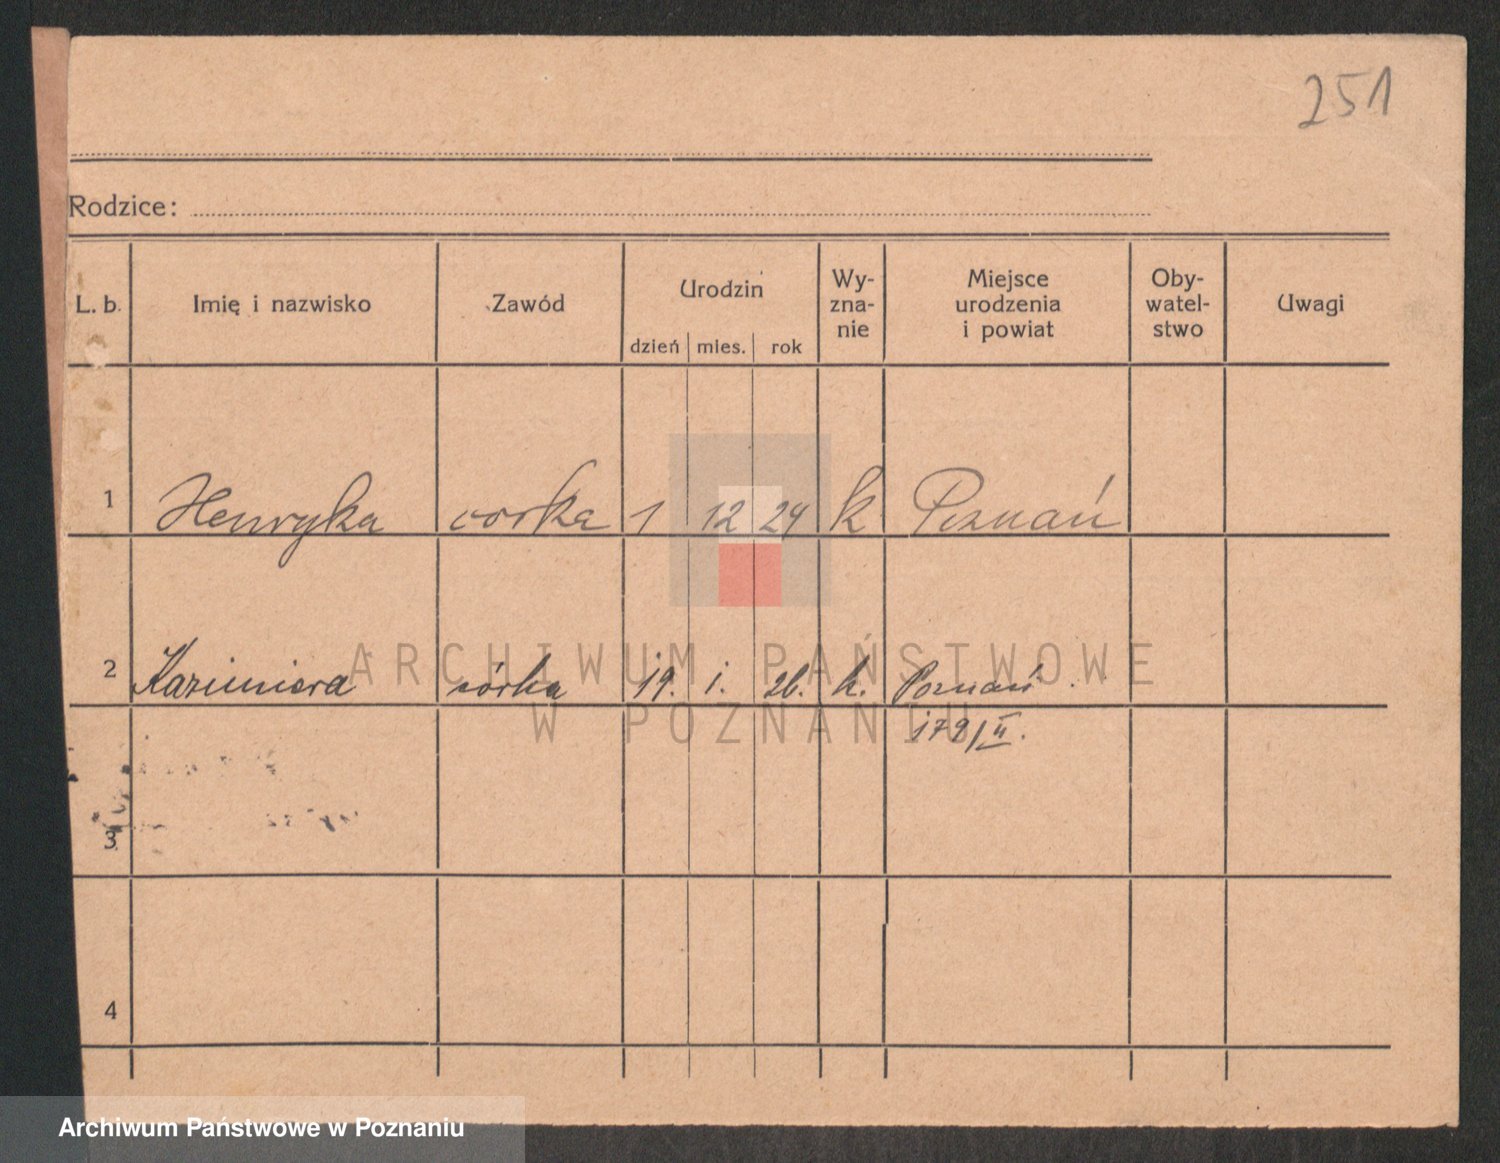 251
Rodzice:
L. b. Imię i nazwisko Zawód Urodzin Wy-zna-nie Miejsce urodzenia i powiat Oby-watel-stwo Uwagi
dzień mies. rok
1 Henryka corka 1 12 24 k Poznań
2 Kazimiera córka 19. 1. 26. k. Poznań
179/II.
3
4
ARCHIWUM PAŃSTWOWE
W POZNANIU
Archiwum Państwowe w Poznaniu